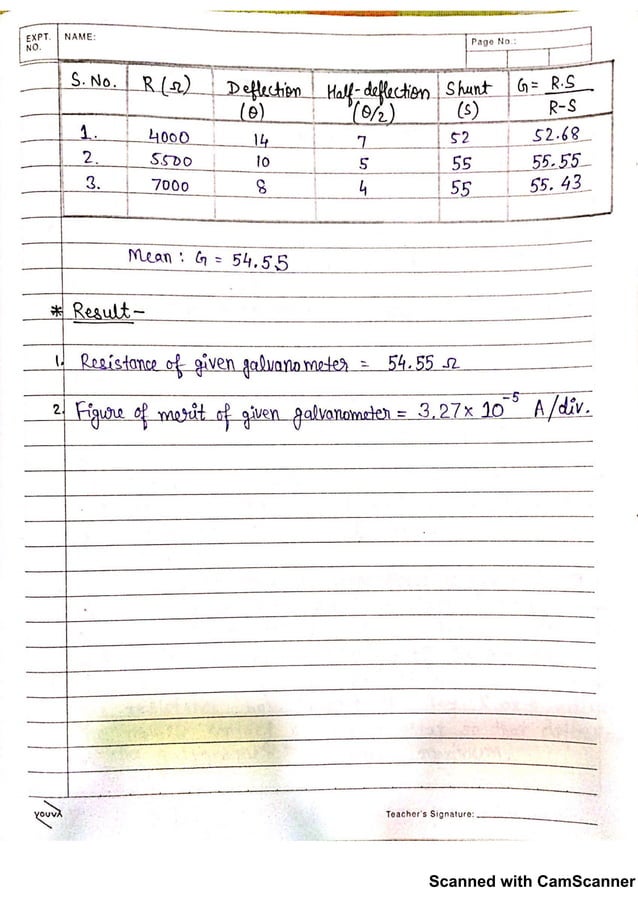 EXPT. NO. NAME: Page No.:
S. No. R (Ω) Deflection (θ) Half-deflection (θ/2) Shunt (S) G = R.S / R-S
1. 4000 14 7 52 52.68
2. 5500 10 5 55 55.55
3. 7000 8 4 55 55.43
Mean : G = 54.55
* Result -
1. Resistance of given galvanometer = 54.55 Ω
2. Figure of merit of given galvanometer = 3.27 x 10⁻⁵ A/div.
youva Teacher's Signature:
Scanned with CamScanner